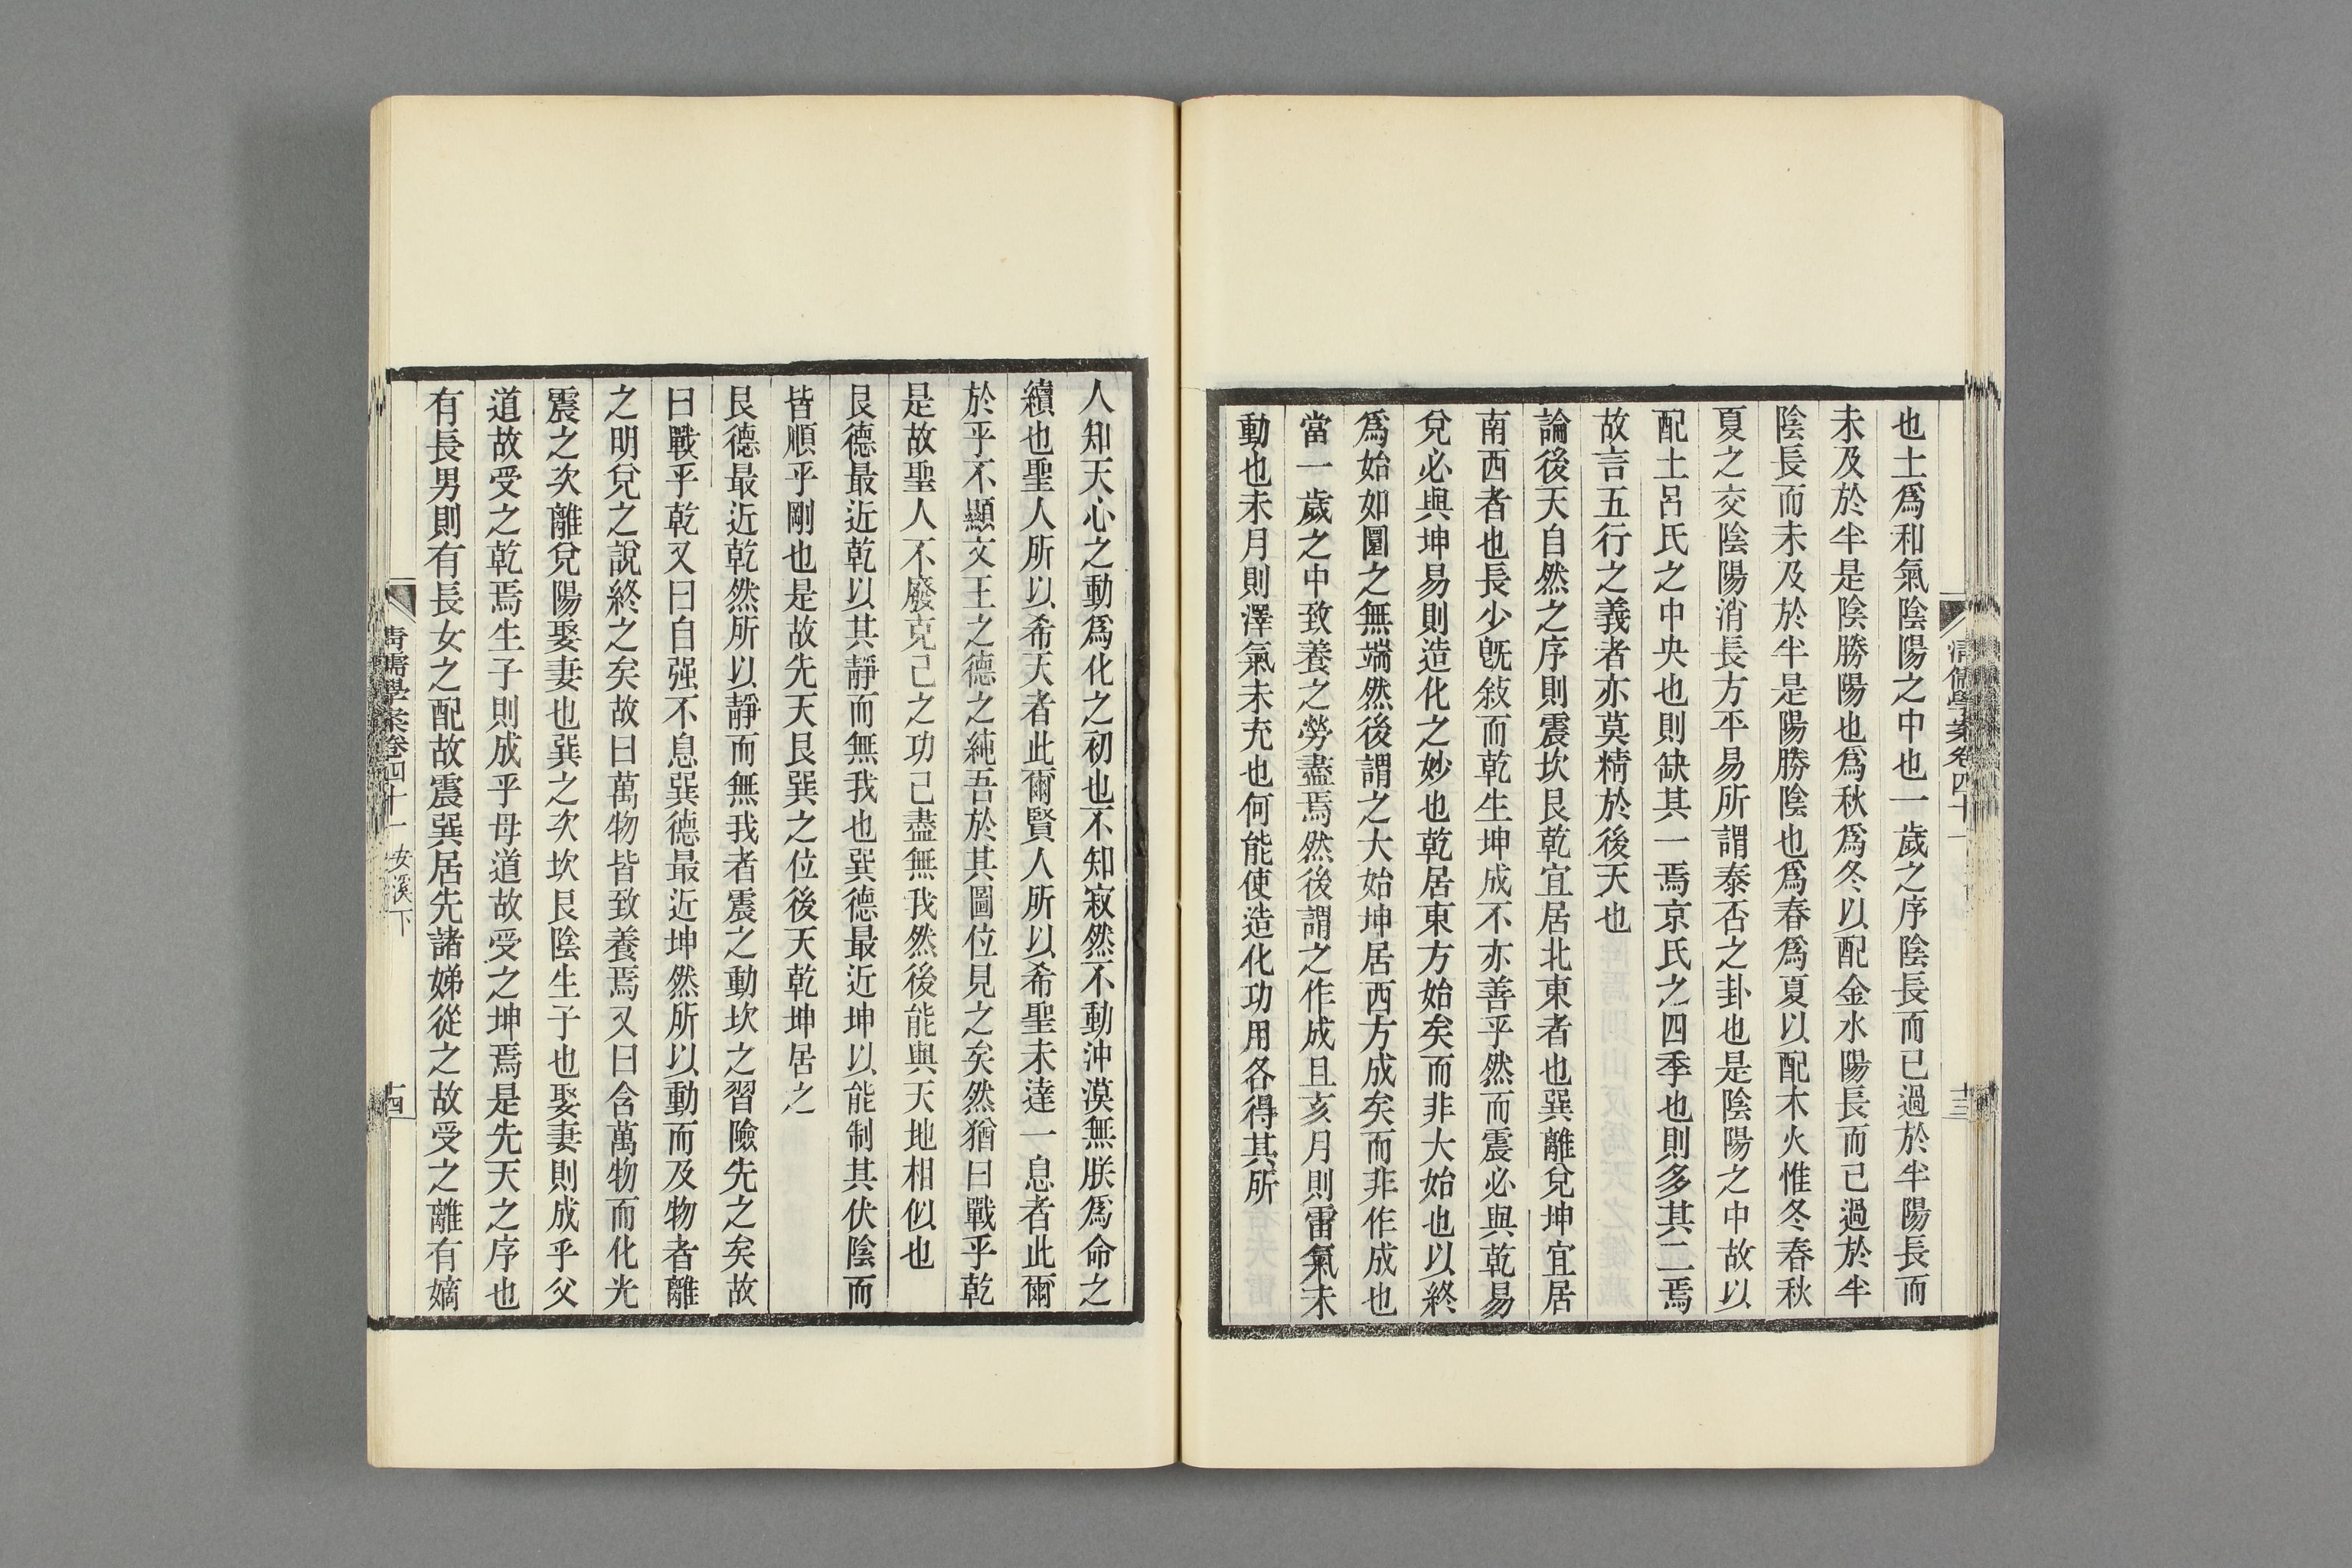 清儒學案卷四十一
十三
也土爲和氣陰陽之中也一歲之序陰長而已過於半陽長而
未及於半是陰勝陽也爲秋爲冬以配金水陽長而已過於半
陰長而未及於半是陽勝陰也爲春爲夏以配木火惟冬春秋
夏之交陰陽消長方平易所謂泰否之卦也是陰陽之中故以
配土呂氏之中央也則缺其一焉京氏之四季也則多其二焉
故言五行之義者亦莫精於後天也
論後天自然之序則震坎艮乾宜居北東者也巽離兌坤宜居
南西者也長少旣敍而乾生坤成不亦善乎然而震必與乾易
兌必與坤易則造化之妙也乾居東方始矣而非大始也以終
爲始如圜之無端然後謂之大始坤居西方成矣而非作成也
當一歲之中致養之勞盡焉然後謂之作成且亥月則雷氣未
動也未月則澤氣未充也何能使造化功用各得其所
人知天心之動爲化之初也不知寂然不動沖漠無朕爲命之
續也聖人所以希天者此爾賢人所以希聖未達一息者此爾
於乎不顯文王之德之純吾於其圖位見之矣然猶曰戰乎乾
是故聖人不廢克己之功己盡無我然後能與天地相似也
艮德最近乾以其靜而無我也巽德最近坤以能制其伏陰而
皆順乎剛也是故先天艮巽之位後天乾坤居之
艮德最近乾然所以靜而無我者震之動坎之習險先之矣故
曰戰乎乾又曰自强不息巽德最近坤然所以動而及物者離
之明兌之說終之矣故曰萬物皆致養焉又曰含萬物而化光
震之次離兌陽娶妻也巽之次坎艮陰生子也娶妻則成乎父
道故受之乾焉生子則成乎母道故受之坤焉是先天之序也
有長男則有長女之配故震巽居先諸娣從之故受之離有嫡
清儒學案卷四十一 安溪下
十四